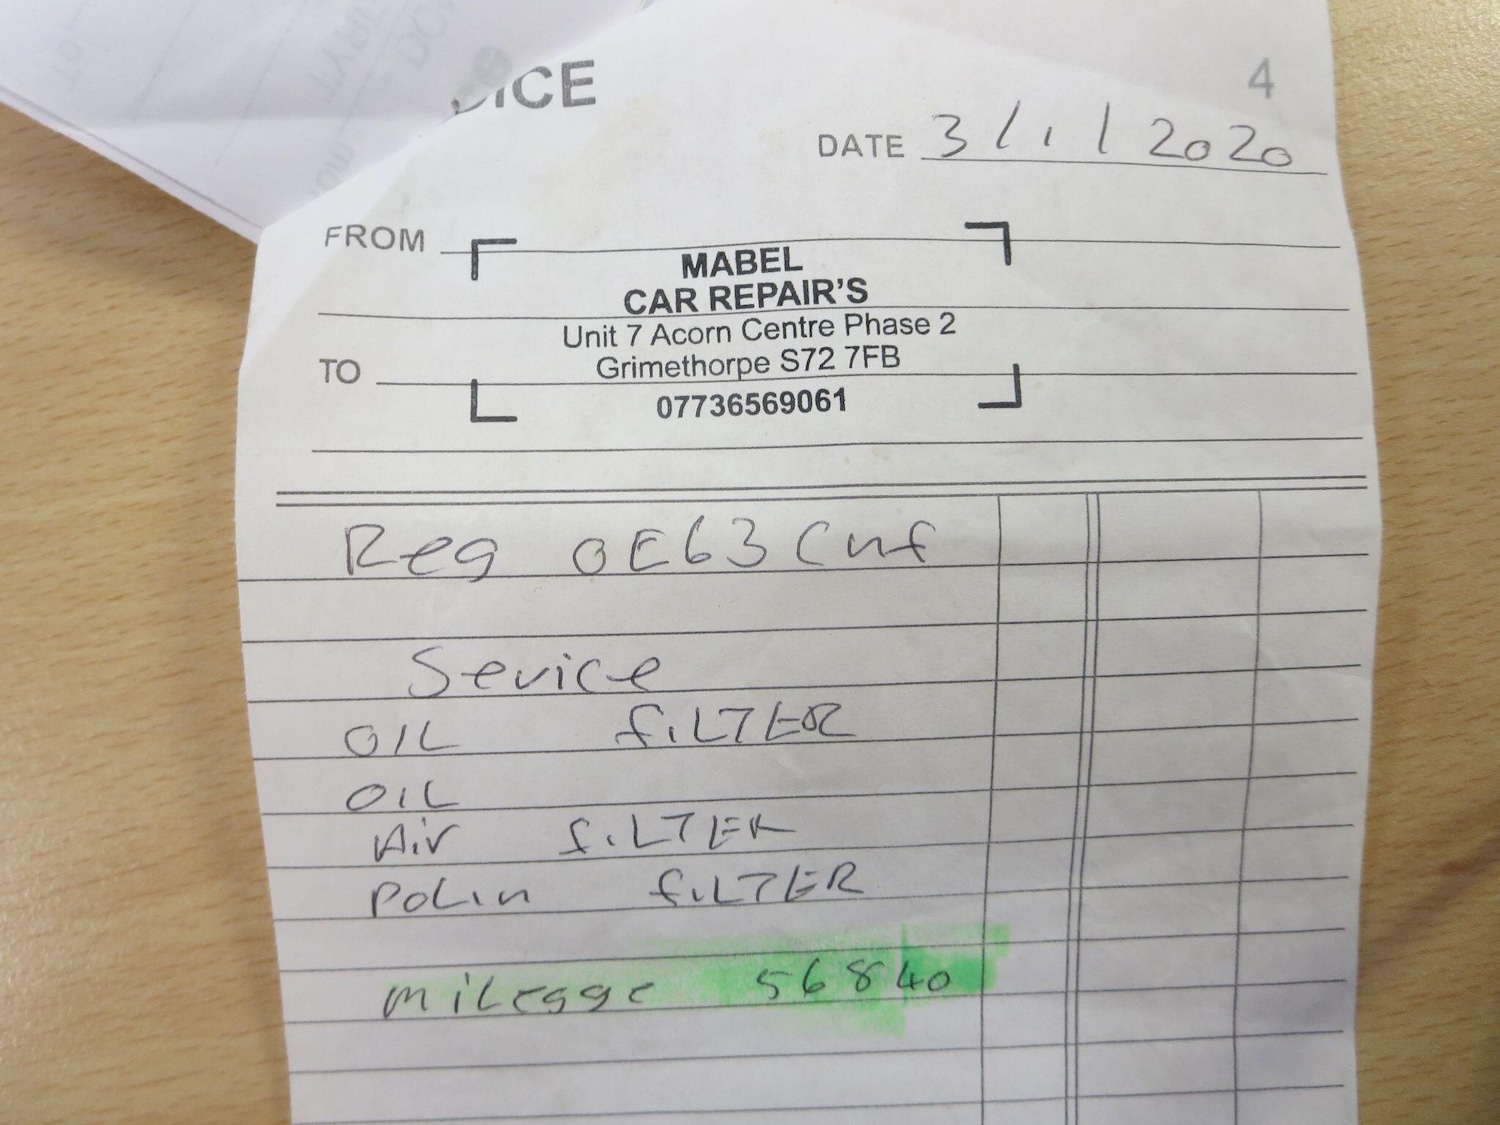 ICE
4
DATE 3/1/2020
FROM
MABEL
CAR REPAIR'S
Unit 7 Acorn Centre Phase 2
Grimethorpe S72 7FB
TO
07736569061
Reg OE63 Cnf
Sevice
OIL fiLTER
OIL
Air fiLTER
PoLin fiLTER
miLegge 56840